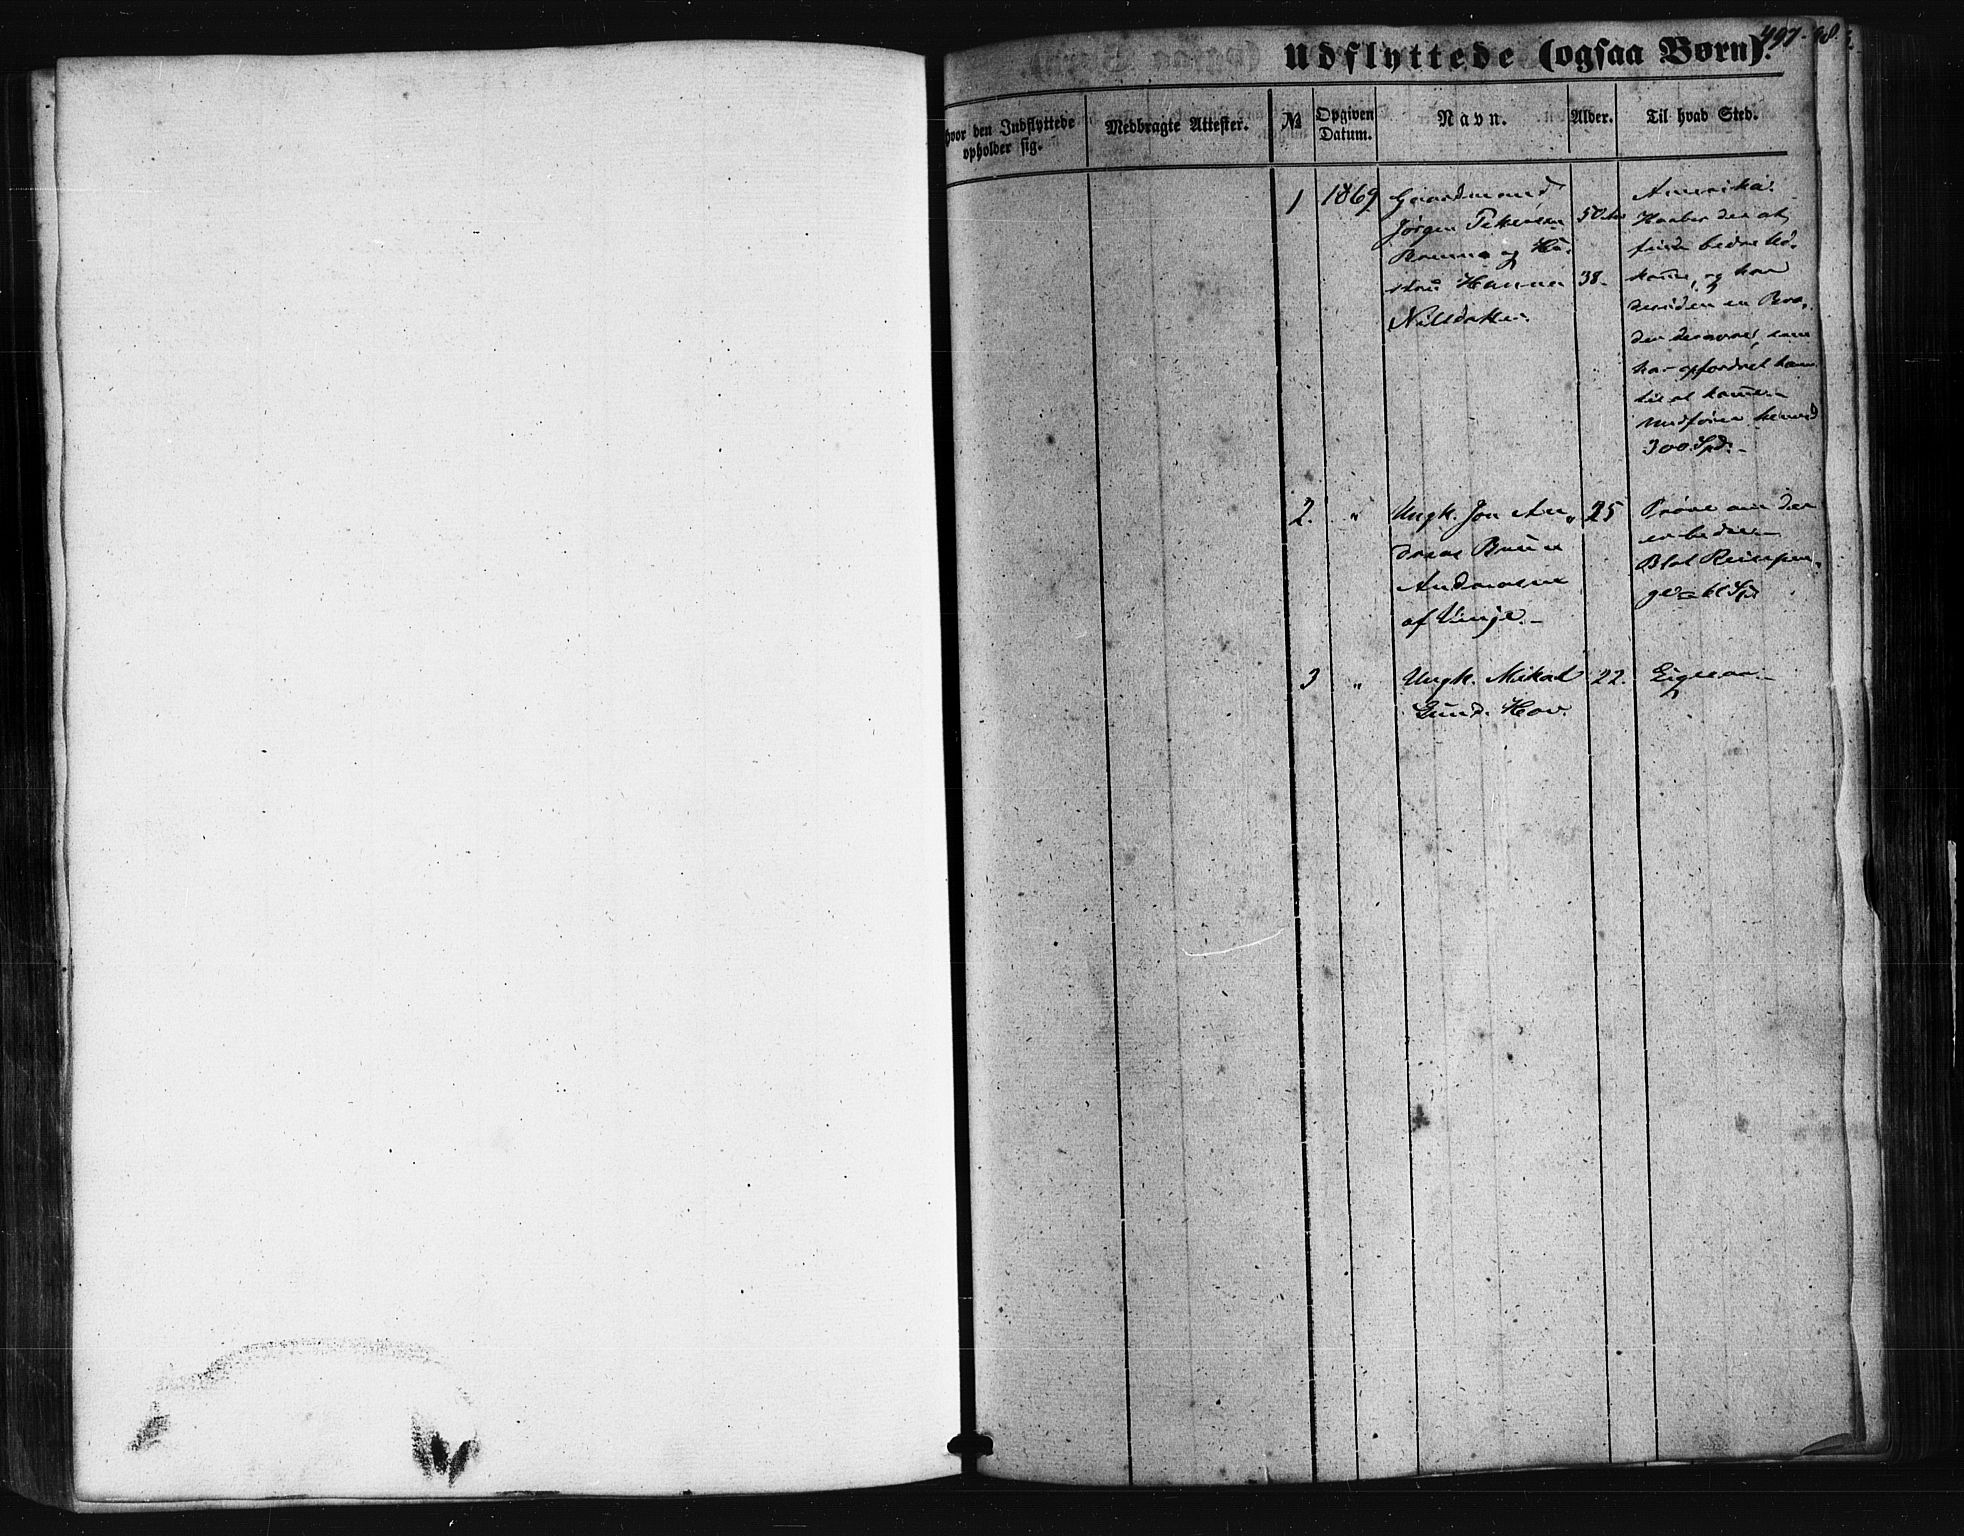 497-98.
Udflyttede (ogsaa Børn).
hvor den Indflyttede
opholder sig.
Medbragte Attester.
№
Opgiven
Datum.
Navn.
Alder.
Til hvad Sted.
1
1869
Gaardmand
Jørgen Pettersen
og Hu-
stru Hanna
Nilsdatter.
50
38.
Amerika.
Haaber der at
finde bedre
og har
desuden en Bro-
der som
har opfordret ham
til at komme.
Medfører henved
300 Spd.
2.
"
Ungk. Jon An-
dreas
Andreasen
af Vinje.
25
Prøve om der
er bedre.
Blot Reisepen-
ge
3
"
Ungk. Mikal
Gund. Hov.
22.
Ligesaa.